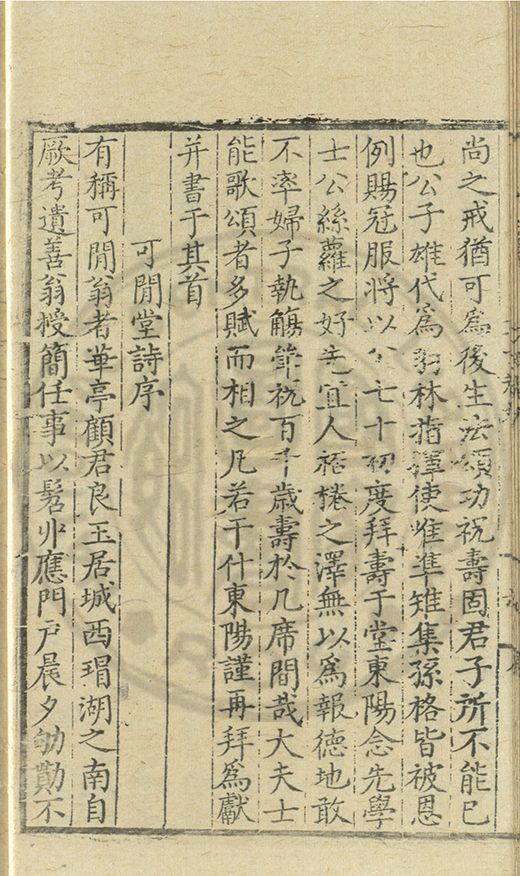 尚之戒猶可爲後生法頌功祝壽固君子所不能已
也公子雄代爲羽林指揮使唯準雉集孫格皆被恩
例賜冠服將以公七十初度拜壽于堂東陽念先學
士公絲蘿之好先宜人桮棬之澤無以爲報德地敢
不率婦子執觴節祝百千歲壽於几席間哉大夫士
能歌頌者多賦而相之凡若干什東陽謹再拜爲獻
并書于其首
可閒堂詩序
有稱可閒翁者華亭顧君良玉居城西瑁湖之南自
厥考遺善翁授簡任事以髫丱應門戶晨夕劬勩不